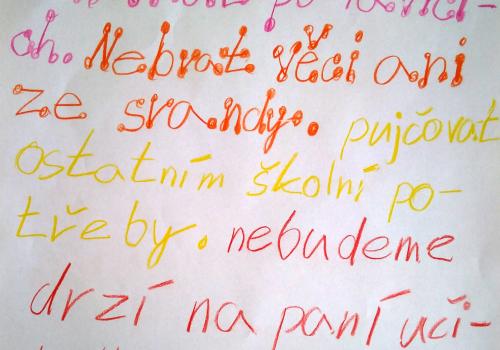 po lavicí-
ch. Nebrat věci ani
ze srandy. pujčovat
ostatním školní po-
třeby. nebudeme
drzí na paní uči-